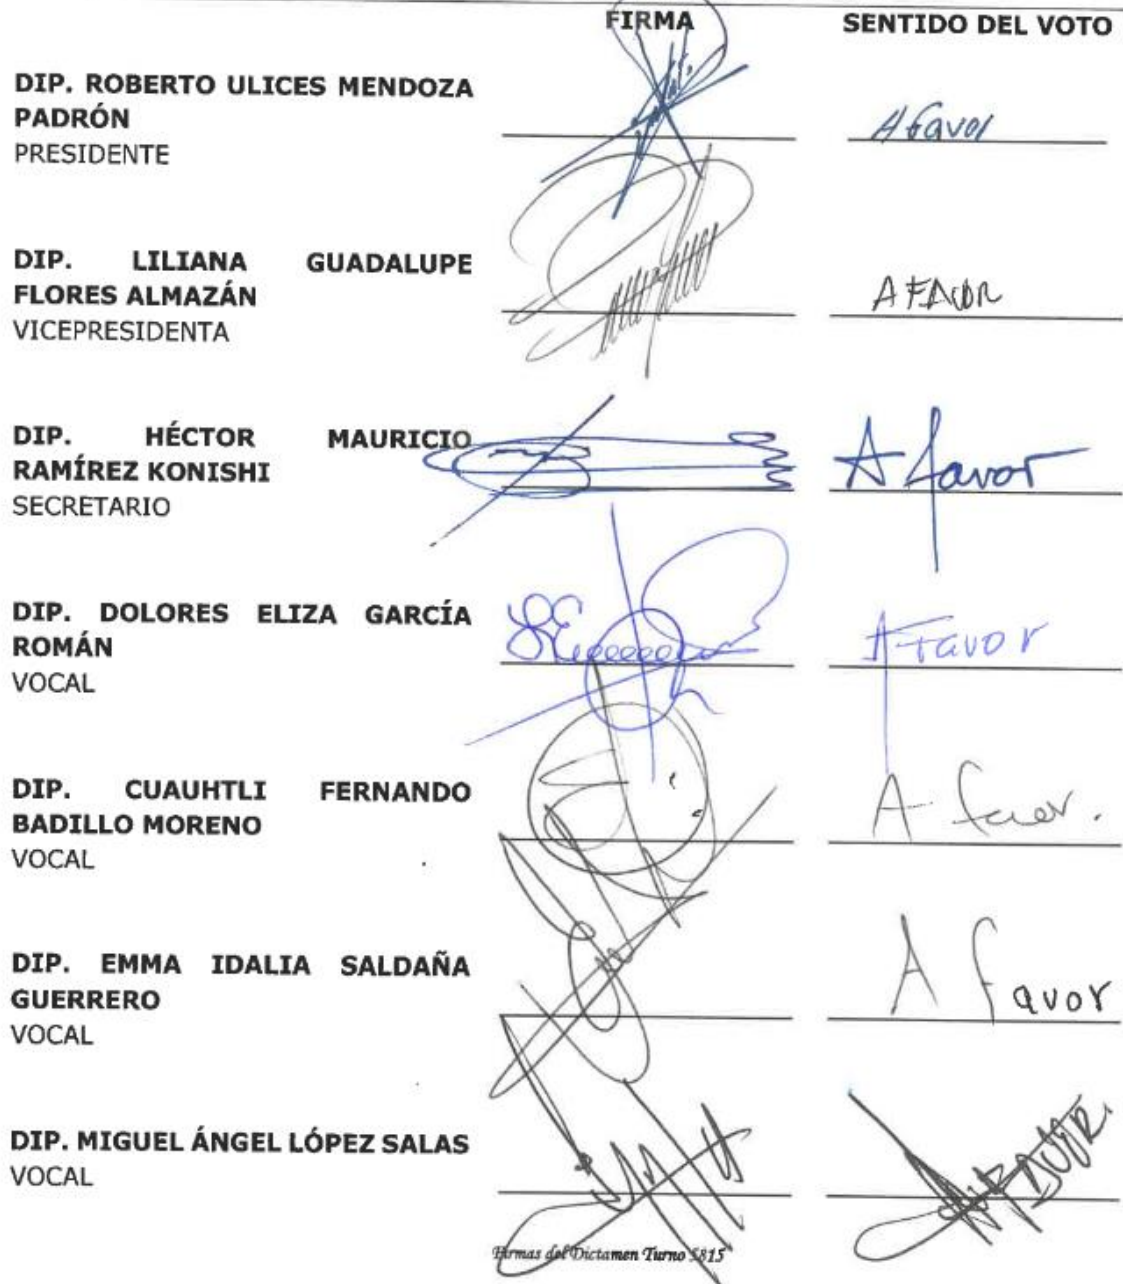 FIRMA SENTIDO DEL VOTO
DIP. ROBERTO ULICES MENDOZA
PADRÓN
PRESIDENTE
A favor
DIP. LILIANA GUADALUPE
FLORES ALMAZÁN
VICEPRESIDENTA
A FAVOR
DIP. HÉCTOR MAURICIO
RAMÍREZ KONISHI
SECRETARIO
A favor
DIP. DOLORES ELIZA GARCÍA
ROMÁN
VOCAL
A Favor
DIP. CUAUHTLI FERNANDO
BADILLO MORENO
VOCAL
A favor.
DIP. EMMA IDALIA SALDAÑA
GUERRERO
VOCAL
A Favor
DIP. MIGUEL ÁNGEL LÓPEZ SALAS
VOCAL
A FAVOR.
Firmas del Dictamen Turno 5815